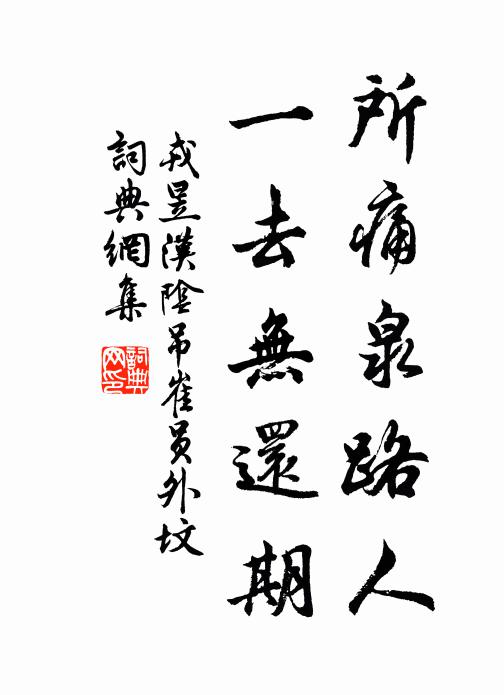 所痛泉路人
一去無還期
戎昱漢陰吊崔員外墳
詞典網集
詞典
网印